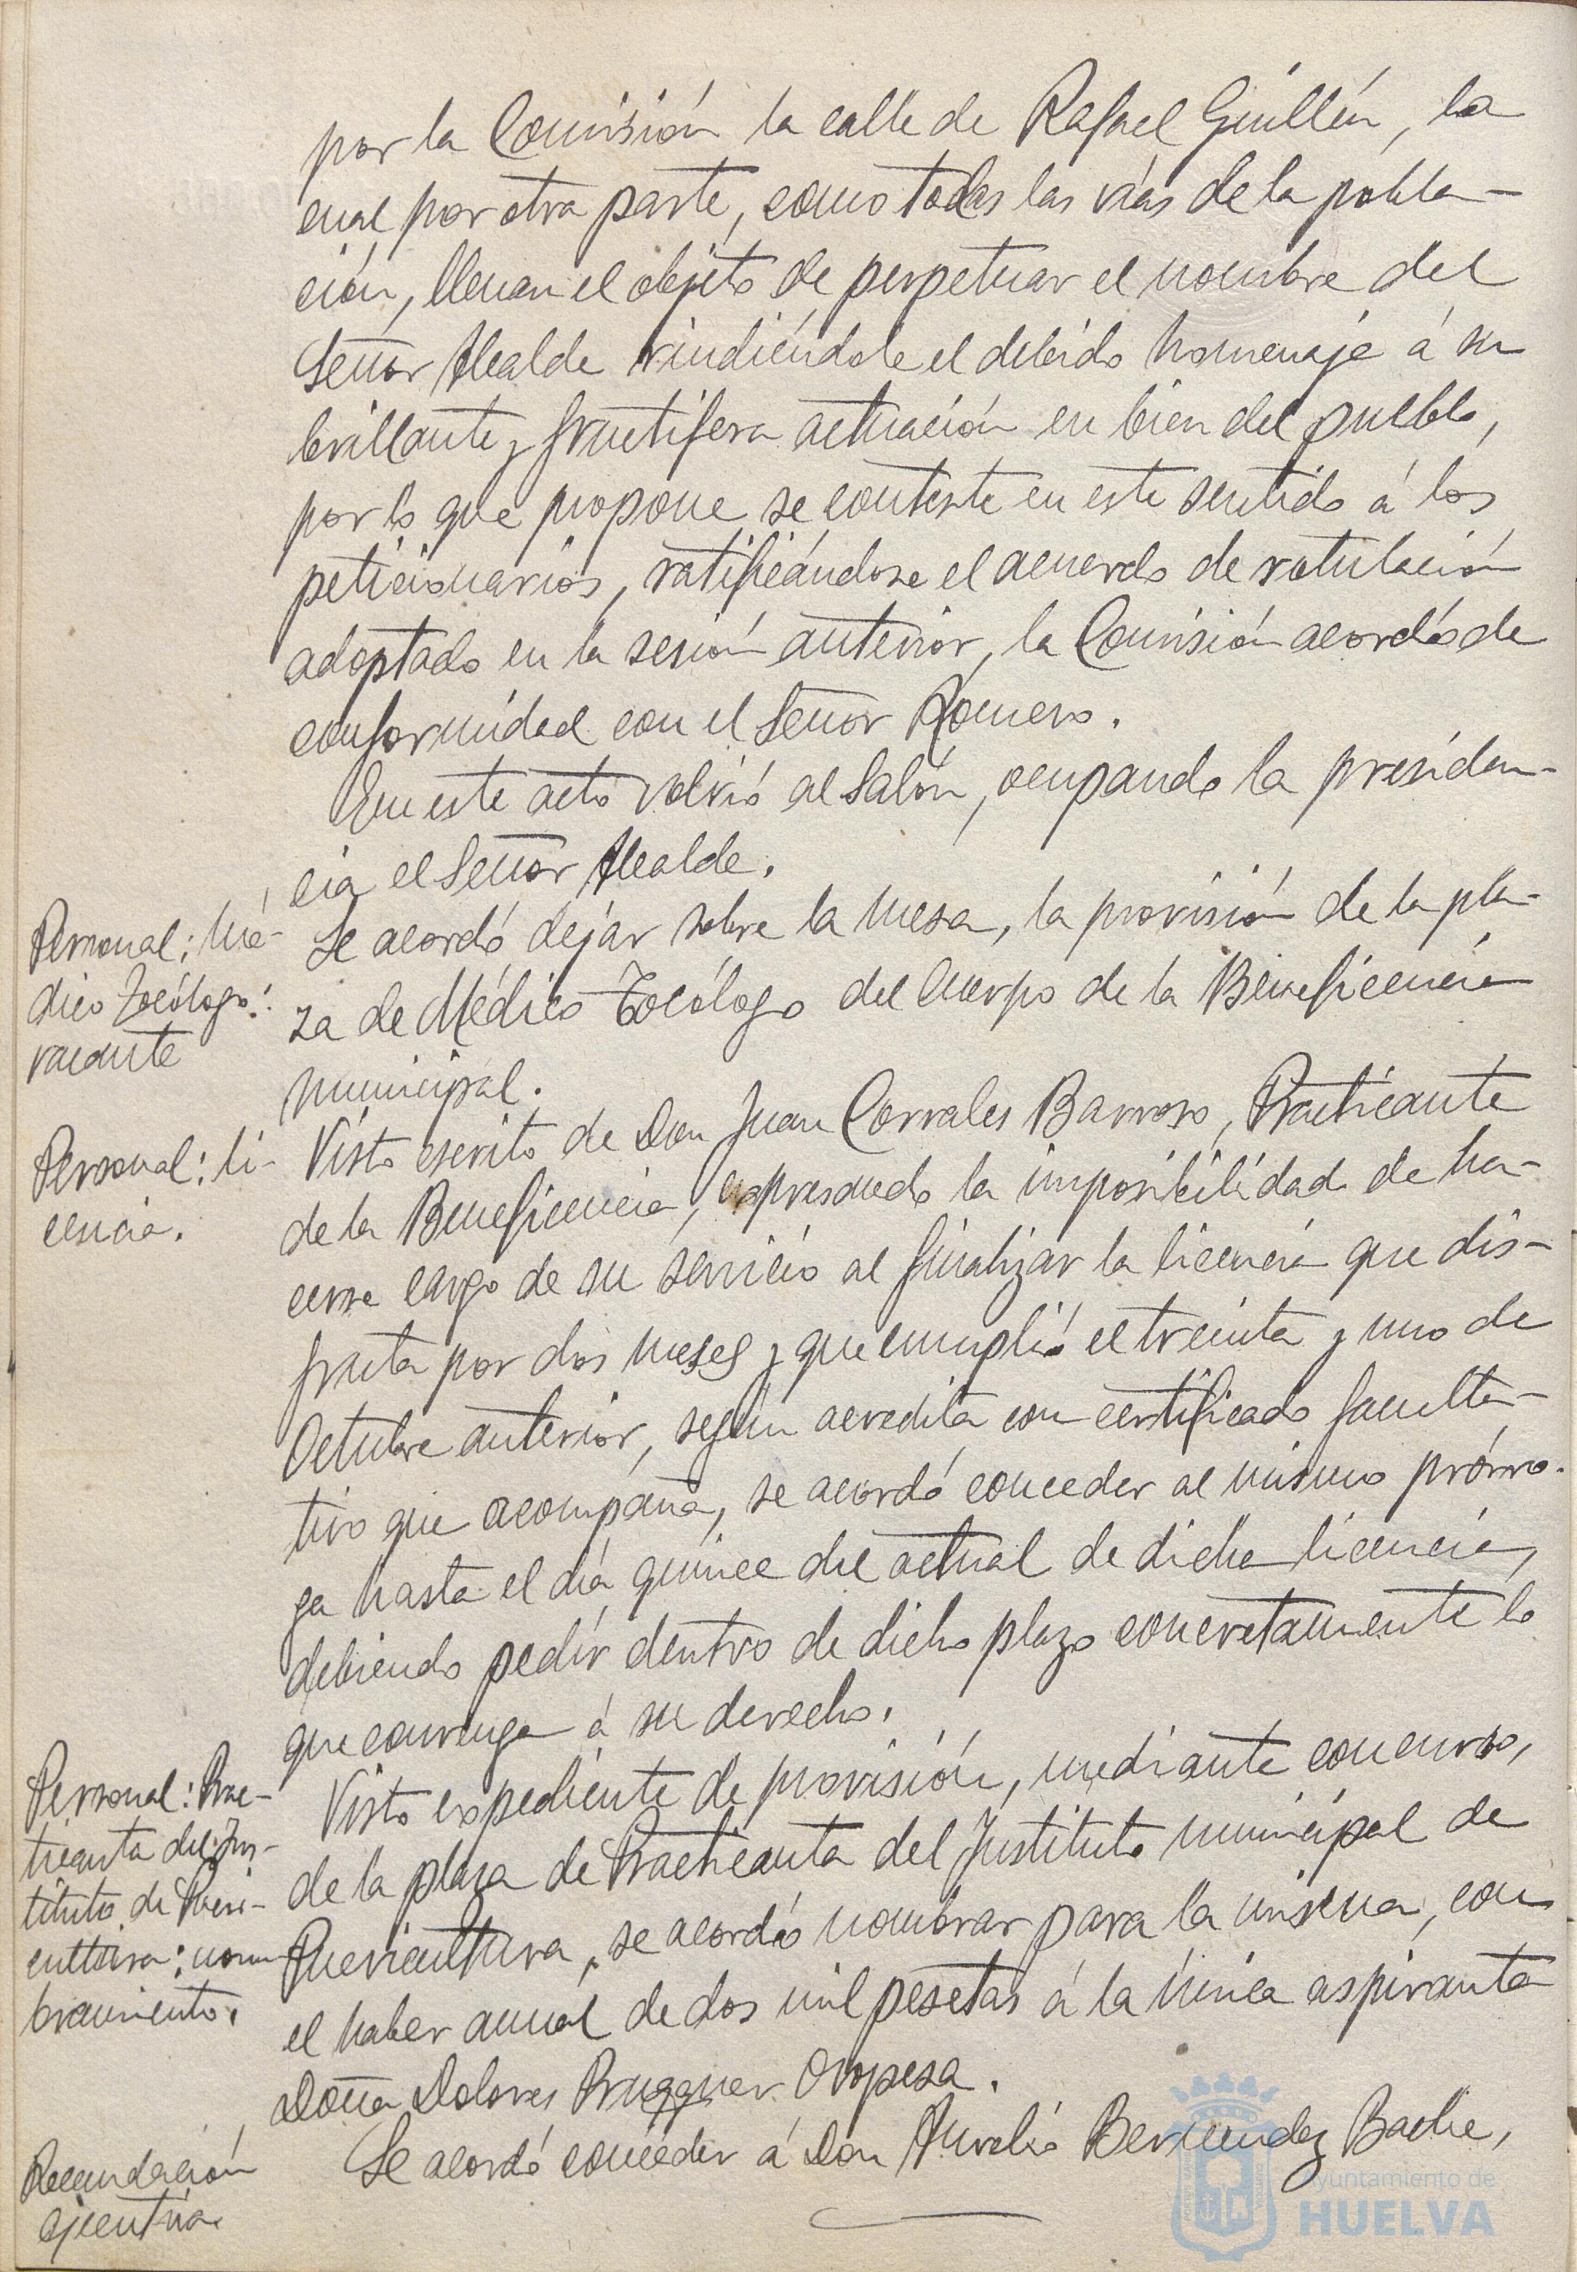 por la Comisión la calle de Rafael Guillén, la
cual por otra parte, como todas las vías de la pobla-
ción, llevan el objeto de perpetuar el nombre del
Señor Alcalde rindiéndole el debido homenaje á su
brillante y fructifera actuación en bien del pueblo,
por lo que propone se conteste en este sentido á los
peticionarios, ratificándose el acuerdo de rotulación
adoptado en la sesión anterior, la Comisión acordó de
conformidad con el Señor Romero.
En este acto volvió al Salón, ocupando la presiden-
cia el Señor Alcalde.
Personal: Mé-
dico Tocólogo:
vacante
Se acordó dejar sobre la mesa, la provisión de la pla-
za de Médico Tocólogo del Cuerpo de la Beneficencia
municipal.
Personal: li-
cencia.
Visto escrito de Don Juan Corrales Barroso, Practicante
de la Beneficencia, expresando la imposibilidad de ha-
cerse cargo de su servicio al finalizar la licencia que dis-
fruta por dos meses y que cumplió el treinta y uno de
Octubre anterior, según acredita con certificado faculta-
tivo que acompaña, se acordó conceder al mismo prórro-
ga hasta el día quince del actual de dicha licencia,
debiendo pedir dentro de dicho plazo concretamente lo
que convenga á su derecho.
Personal: Prac-
ticanta del Ins-
tituto de Pueri-
cultura: nom
bramiento.
Visto expediente de provisión, mediante concurso,
de la plaza de Practicanta del Instituto municipal de
Puericultura, se acordó nombrar para la misma, con
el haber anual de dos mil pesetas á la única aspiranta
Doña Dolores Brugguer Oropesa.
Recaudación
ejecutiva.
Se acordó conceder á Don Aurelio Bermudez Bache,
Ayuntamiento de
HUELVA